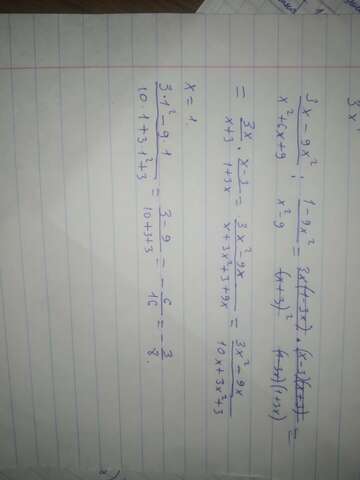 3x
3x - 9x² / x² + 6x + 9 : 1 - 9x² / x² - 9 = 3x(1 - 3x) / (x + 3)² · (x - 3)(x + 3) / (1 - 3x)(1 + 3x) =
= 3x / x + 3 · x - 3 / 1 + 3x = 3x² - 9x / x + 3x² + 3 + 9x = 3x² - 9x / 10x + 3x² + 3
x = 1.
3 · 1² - 9 · 1 / 10 · 1 + 3 · 1² + 3 = 3 - 9 / 10 + 3 + 3 = - 6 / 16 = - 3 / 8.